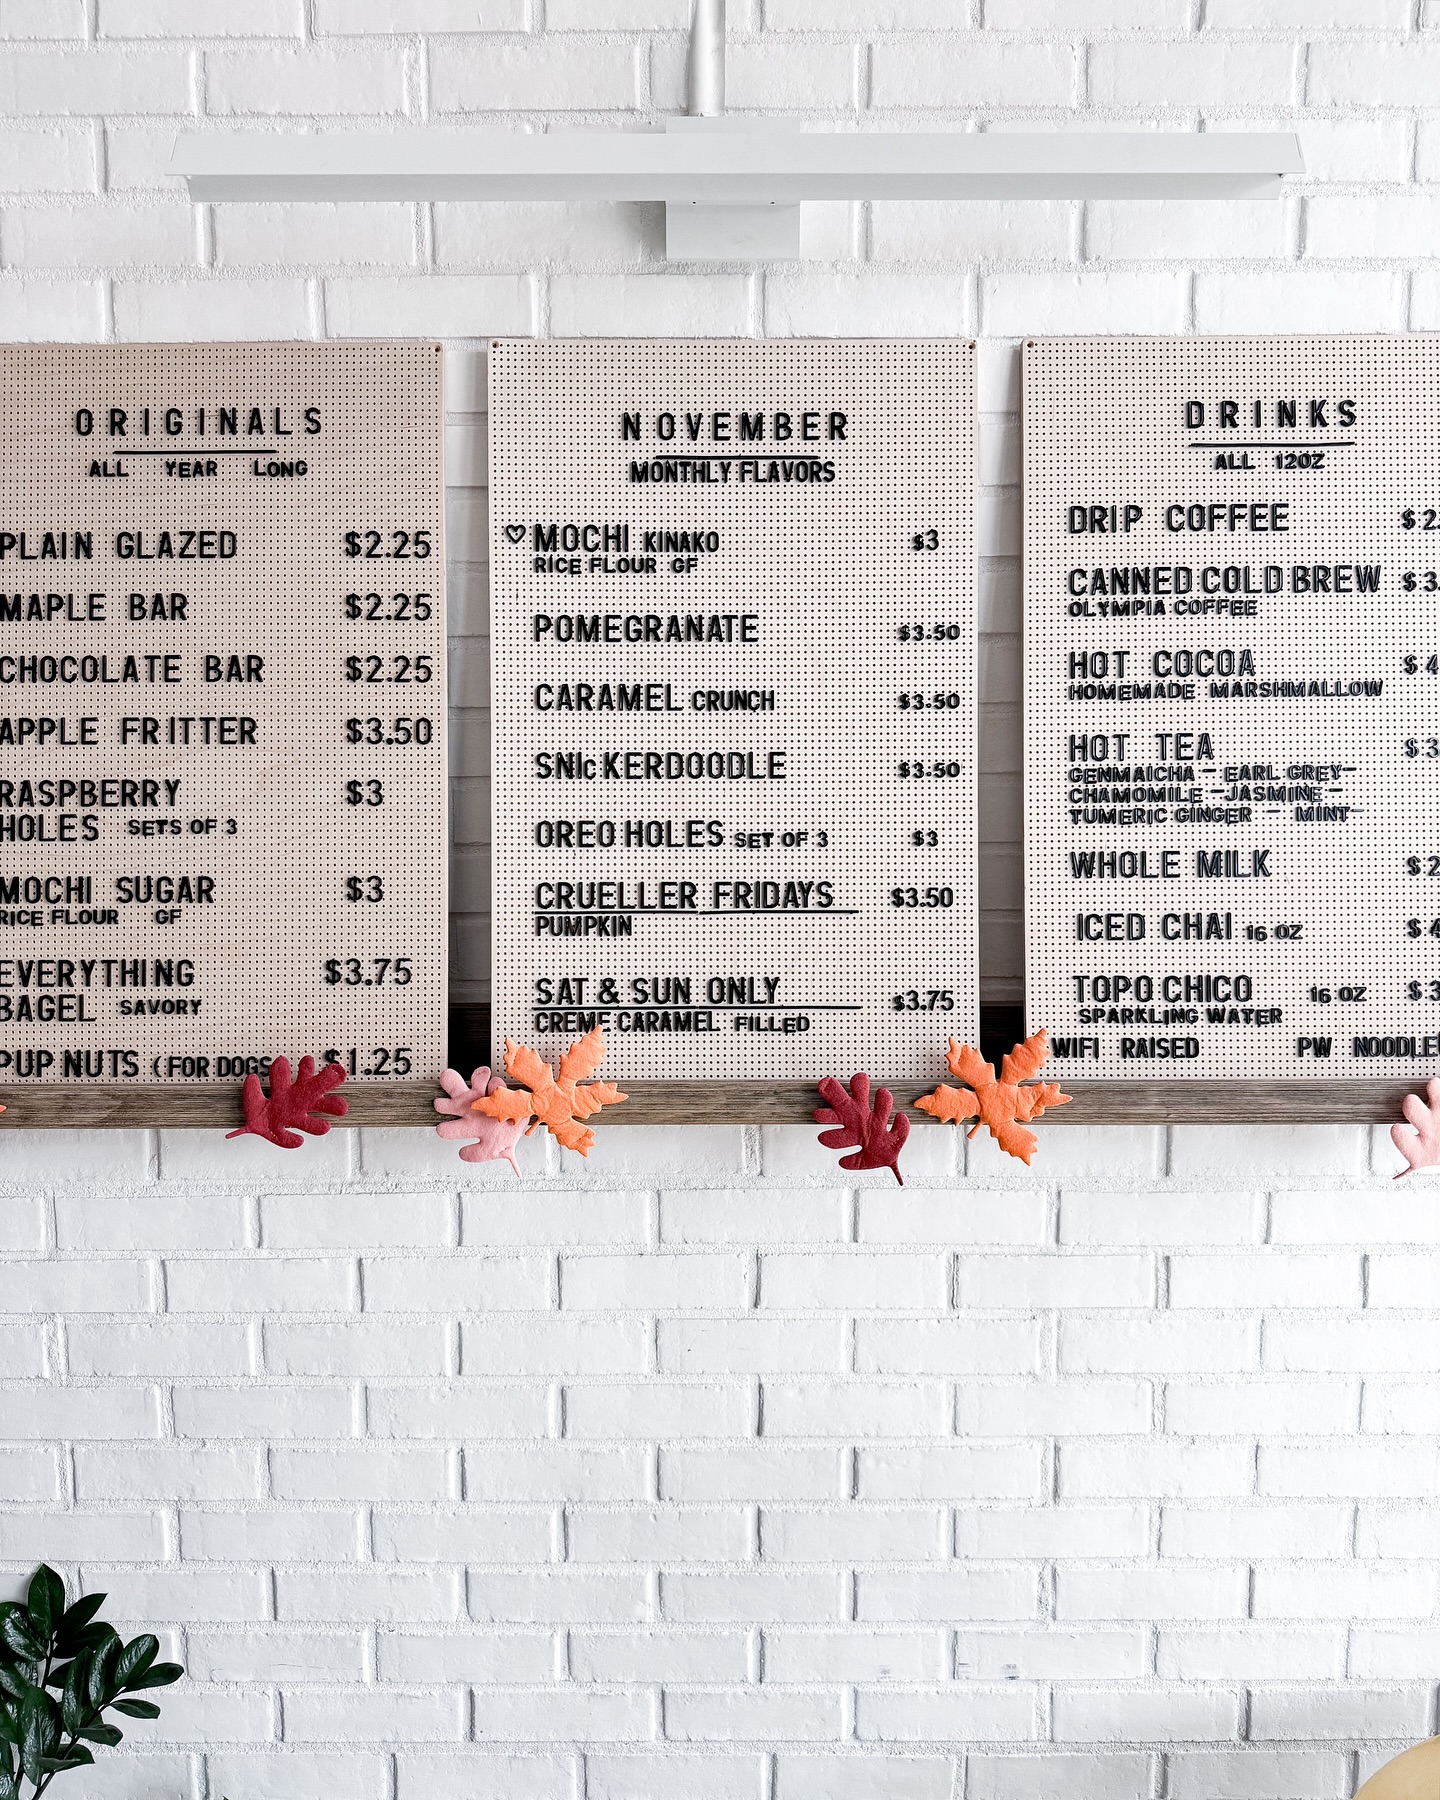 ORIGINALS
ALL YEAR LONG
PLAIN GLAZED $2.25
MAPLE BAR $2.25
CHOCOLATE BAR $2.25
APPLE FRITTER $3.50
RASPBERRY $3
HOLES SETS OF 3
MOCHI SUGAR $3
RICE FLOUR GF
EVERYTHING $3.75
BAGEL SAVORY
PUP NUTS (FOR DOGS $1.25
NOVEMBER
MONTHLY FLAVORS
♡ MOCHI KINAKO $3
RICE FLOUR GF
POMEGRANATE $3.50
CARAMEL CRUNCH $3.50
SNIcKERDOODLE $3.50
OREO HOLES SET OF 3 $3
CRUELLER FRIDAYS $3.50
PUMPKIN
SAT & SUN ONLY $3.75
CREME CARAMEL FILLED
DRINKS
ALL 12OZ
DRIP COFFEE $2.
CANNED COLD BREW $3.
OLYMPIA COFFEE
HOT COCOA $4
HOMEMADE MARSHMALLOW
HOT TEA $3
GENMAICHA - EARL GREY-
CHAMOMILE -JASMINE-
TUMERIC GINGER - MINT-
WHOLE MILK $2
ICED CHAI 16 OZ $4
TOPO CHICO 16 OZ $3
SPARKLING WATER
WIFI RAISED PW NOODLE